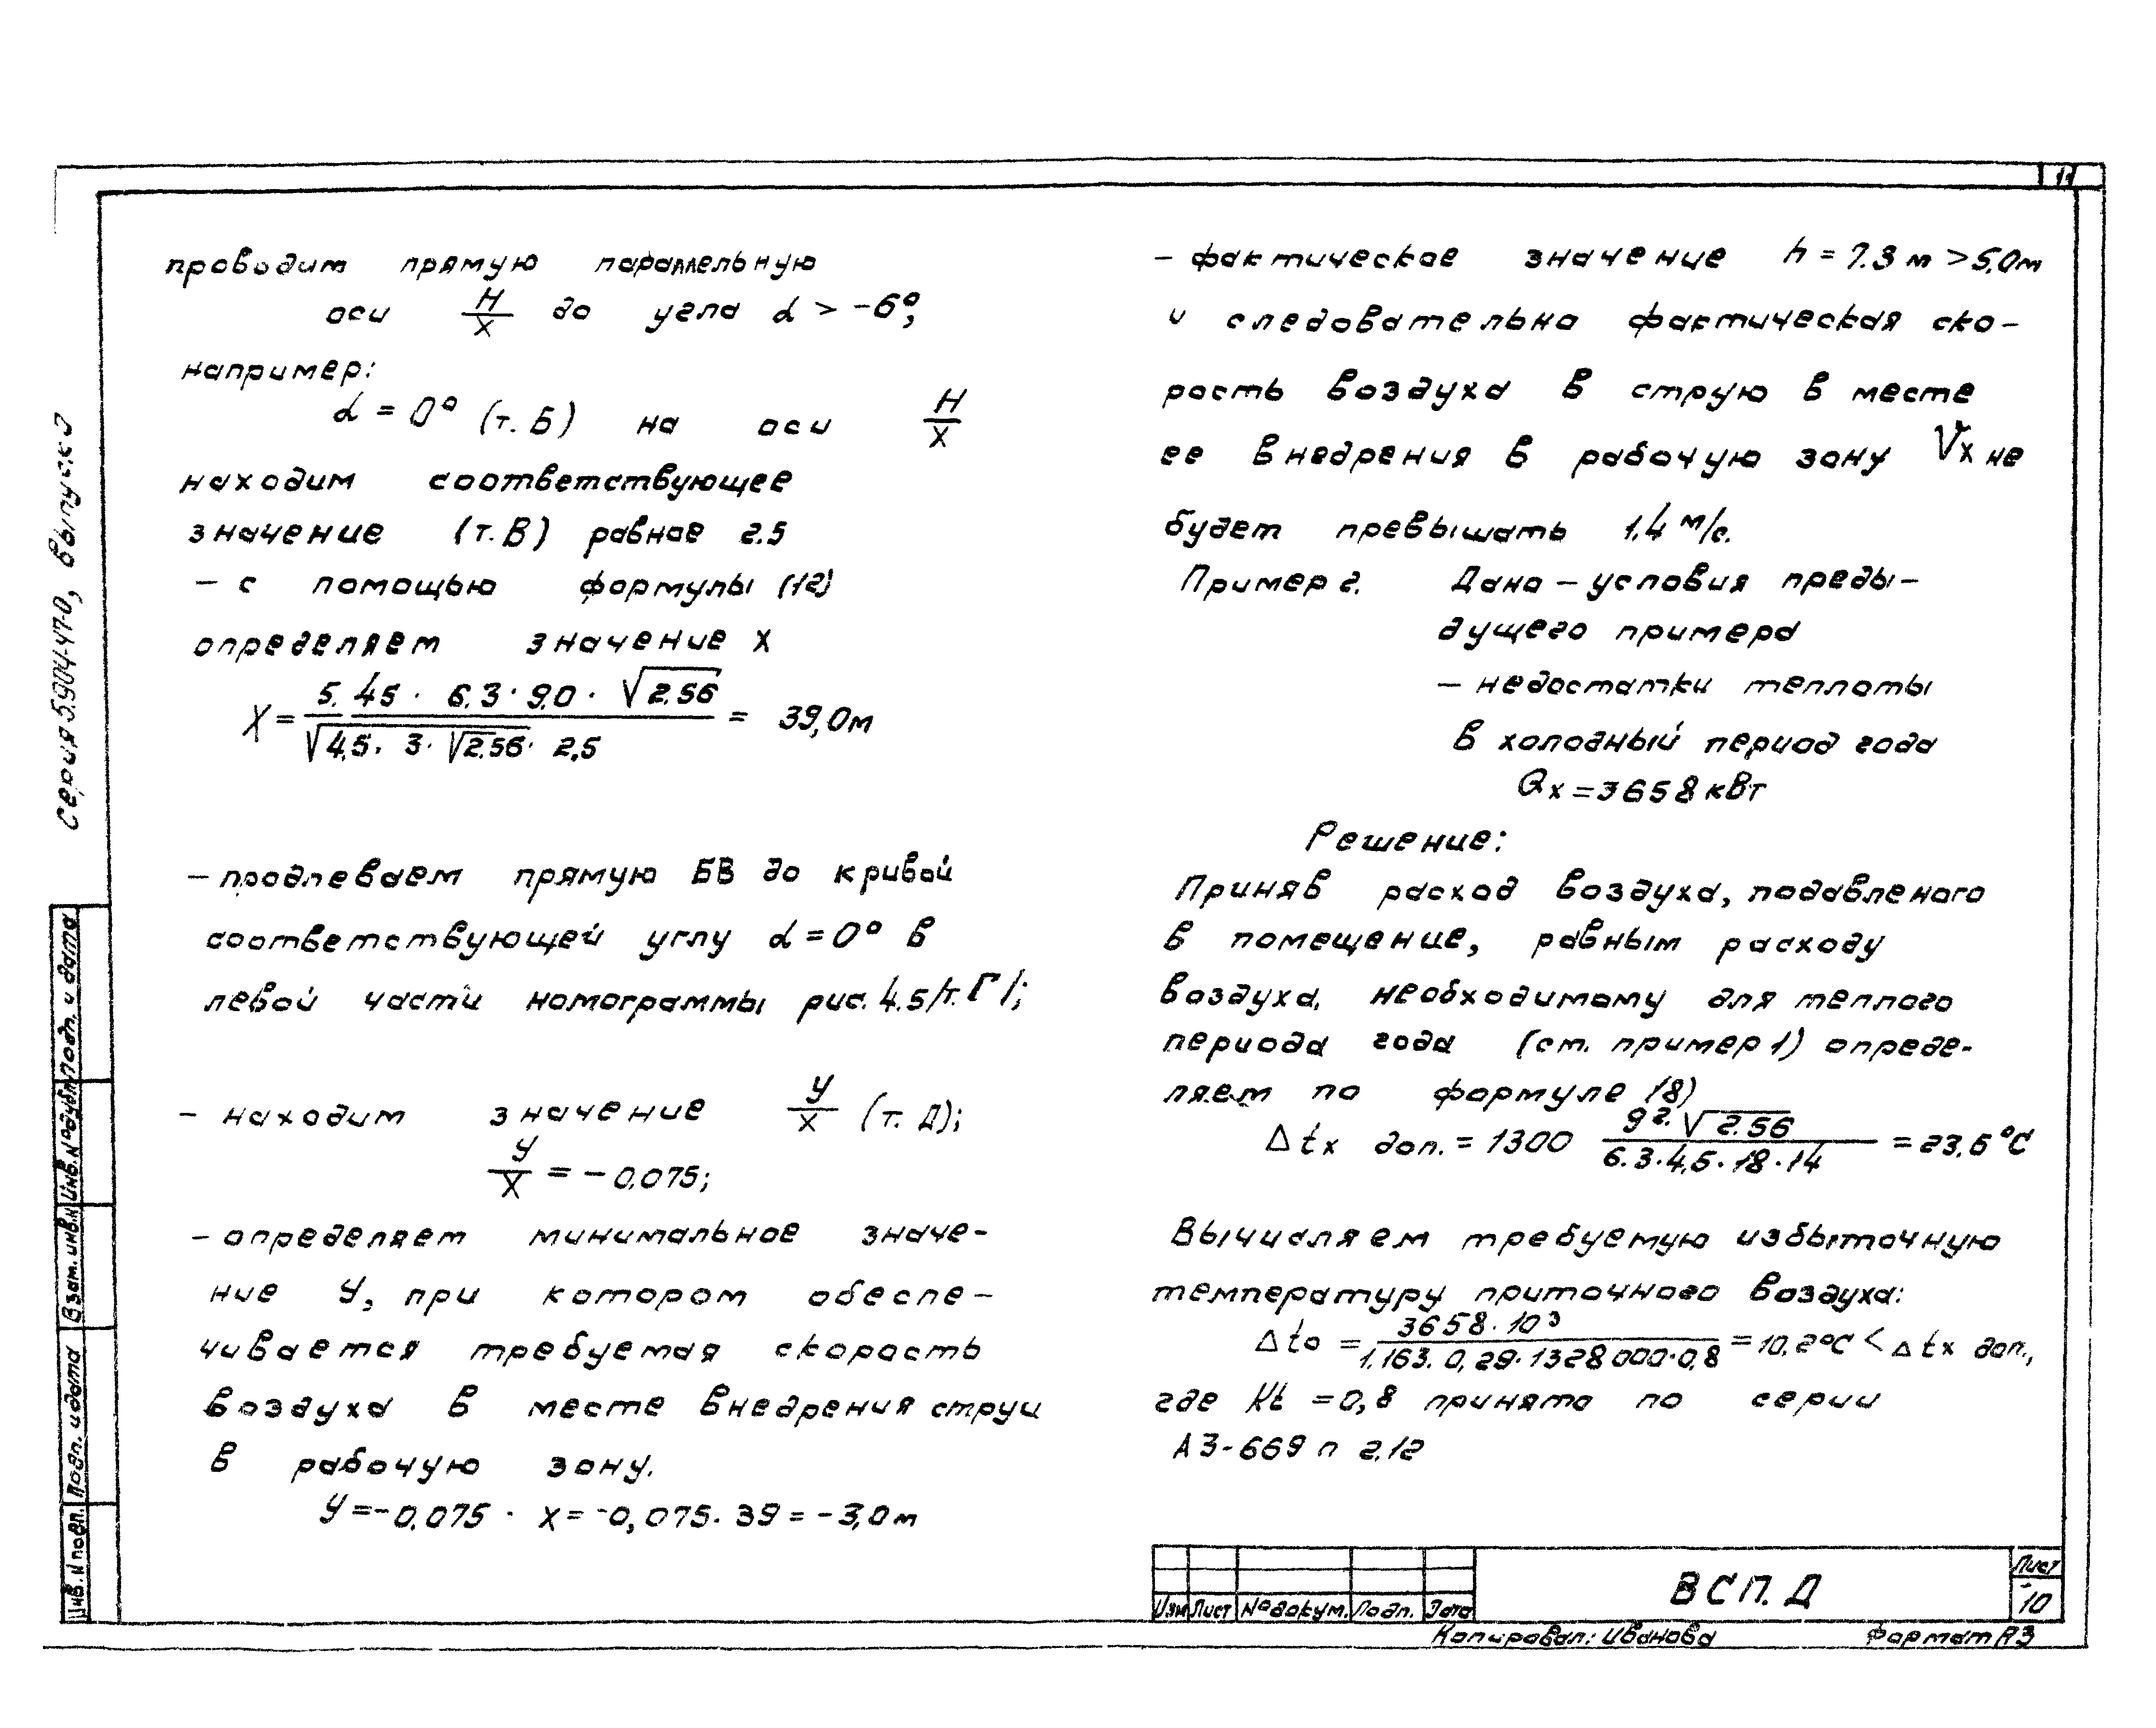 11
проводим прямую параллельную
оси H/X до угла α > -6°;
например:
α = 0° (т. Б) на оси H/X
находим соответствующее
значение (т. В) равное 2.5
- с помощью формулы (12)
определяем значение X
X = (5.45 · 6.3 · 9.0 · √2.56) / (√4,5 · 3 · √2.56 · 2,5) = 39,0м
- продлеваем прямую БВ до кривой
соответствующей углу α = 0° в
левой части номограммы рис. 4.5/т. Г/;
- находим значение У/X (т. Д);
У/X = -0.075;
- определяем минимальное значе-
ние У, при котором обеспе-
чивается требуемая скорость
воздуха в месте внедрения струи
в рабочую зону.
У = -0.075 · X = -0,075 · 39 = -3,0м
- фактическое значение h = 7.3 м > 5,0м
и следовательно фактическая ско-
рость воздуха в струю в месте
ее внедрения в рабочую зону Vx не
будет превышать 1.4 м/с.
Пример 2. Дано - условия преды-
дущего примера
- недостатки теплоты
в холодный период года
Qx = 3658 кВт
Решение:
Приняв расход воздуха, подавленого
в помещение, равным расходу
воздуха, необходимому для теплого
периода года (см. пример 1) опреде-
ляем по формуле (8)
Δtx доп. = 1300 (9². √2.56) / (6.3 · 4,5 · 18 · 14) = 23,6°С
Вычисляем требуемую избыточную
температуру приточного воздуха:
Δto = (3658 · 10³) / (1.163. 0,29 · 1328000 · 0,8) = 10,2°С < Δtx доп.,
где Kt = 0,8 принято по серии
А3-669 п 2.12
Серия 5.904-47-0, Выпуск 0
Подп. и дата
Инв.№дубл.
Взам. инв.N
Подп. и дата
Инв. N подл.
Изм Лист №докум. Подп. Дата
ВСП. Д
Лист
10
Копировал: Иванова Формат А3